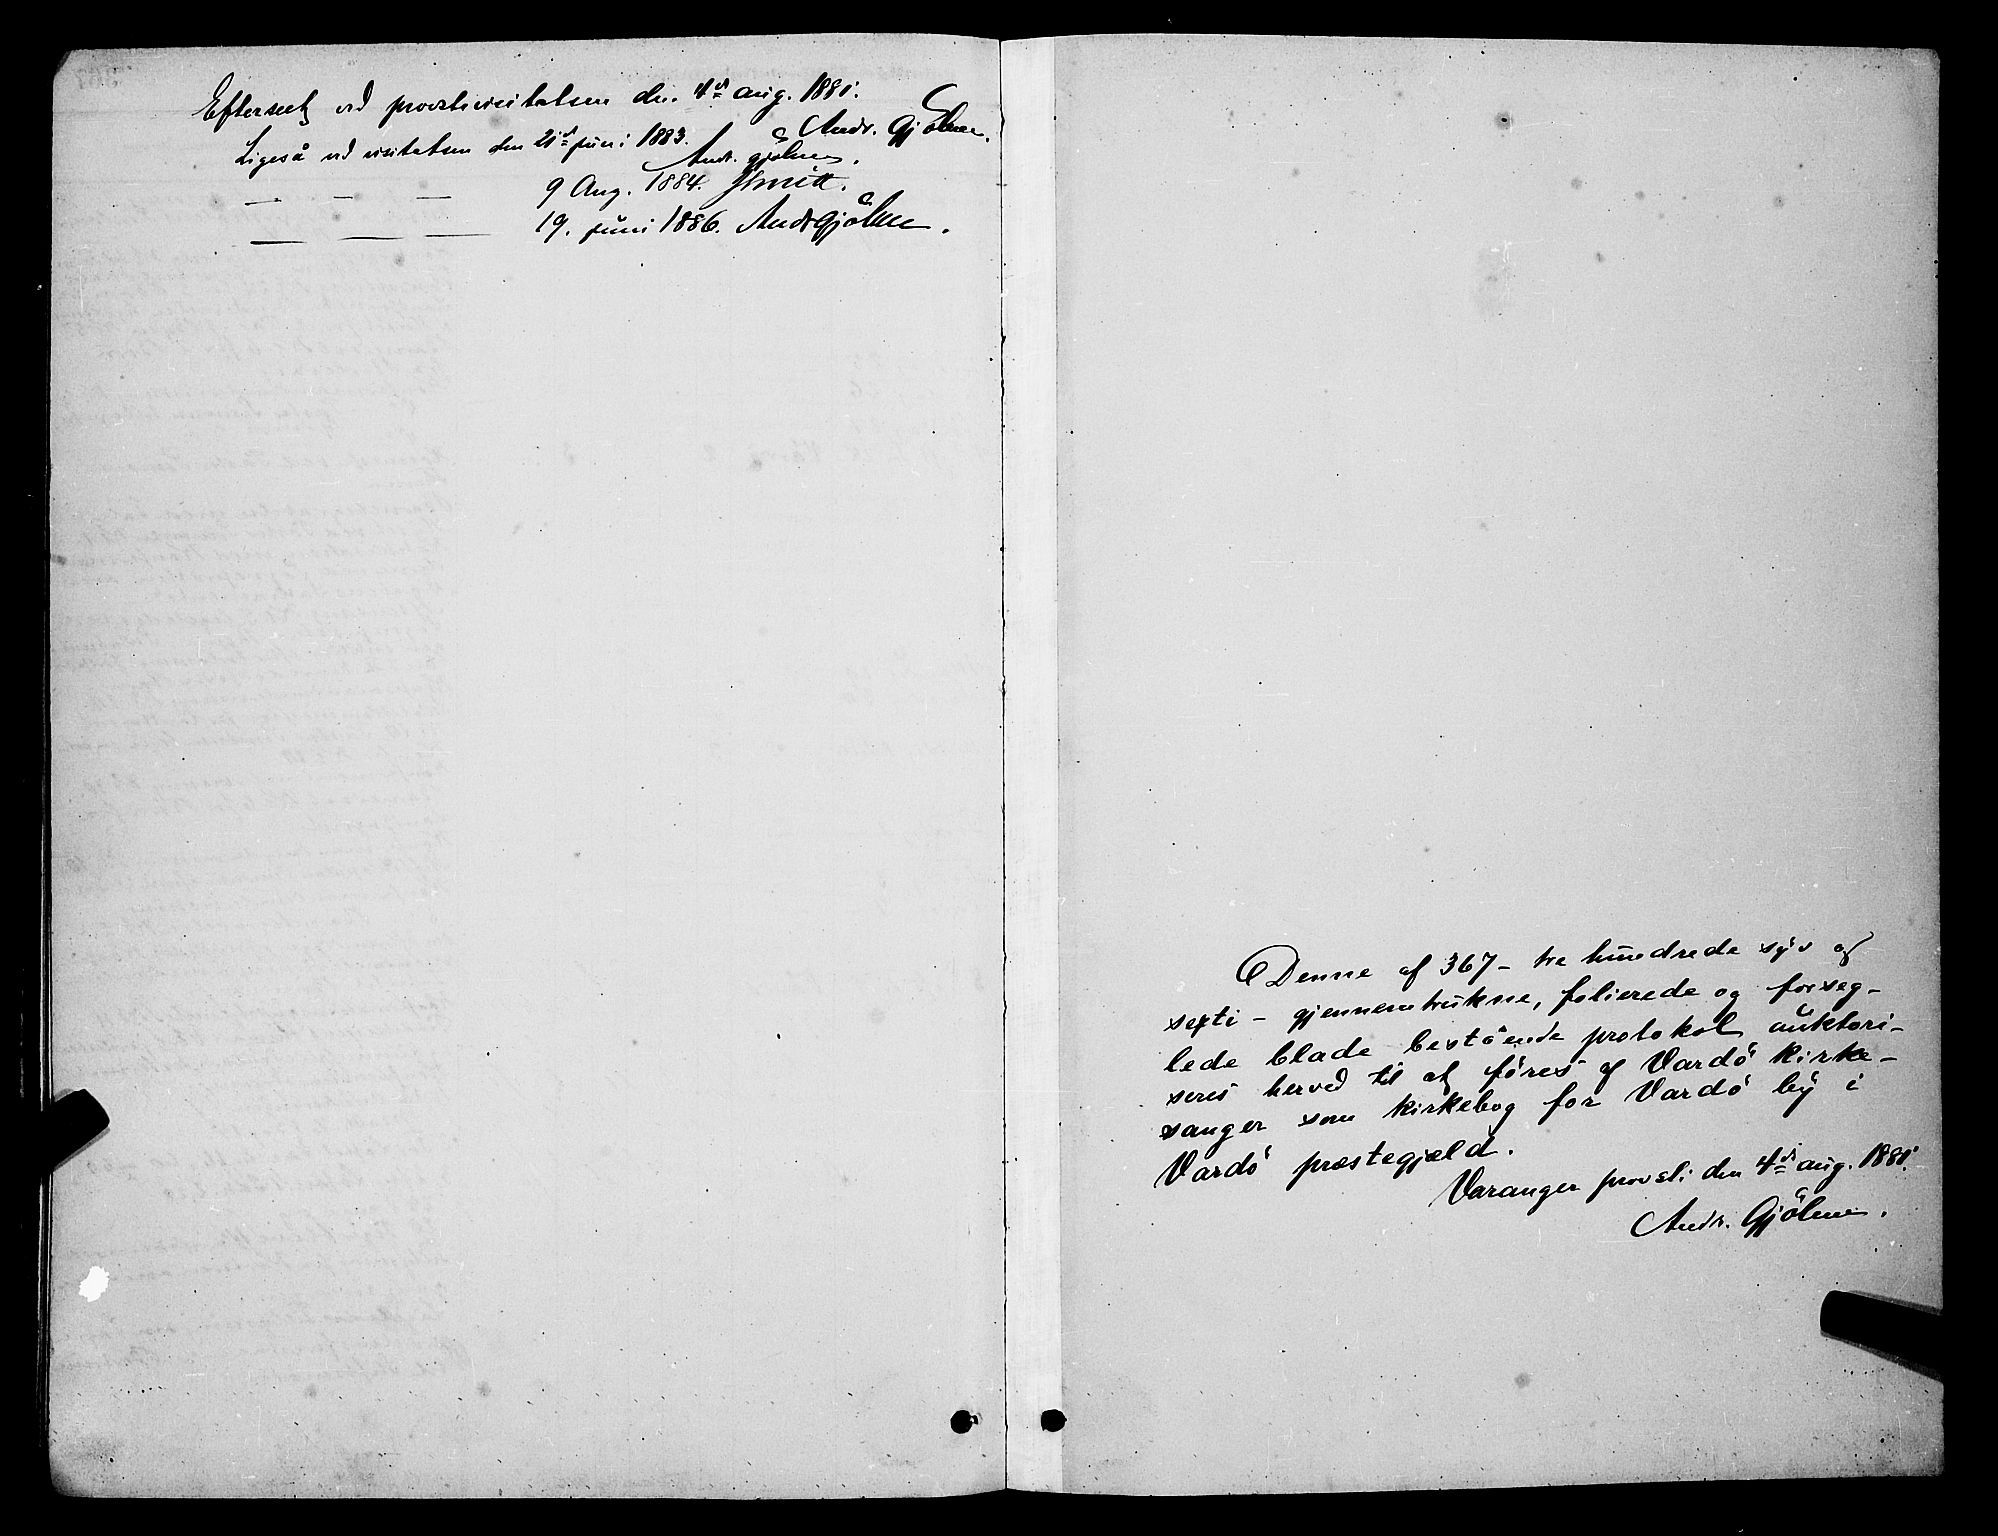 Efterseet ved provstevisitatsen den 4de aug. 1881.
Andr. Gjölme.
Ligeså ved visitatsen den 21de juni 1883. Andr. Gjölme.
— — — 9 Aug. 1884. JSmitt.
— — — 19. juni 1886. Andr Gjölme.
Denne af 367 – tre hundrede syv og
sexti – gjennemtrukne, folierede og forseg-
lede blade bestående protokol auktori-
seres herved til at føres af Vardö kirke-
sanger som kirkebog for Vardö by i
Vardö præstegjæld.
Varanger provsti den 4de aug. 1881.
Andr. Gjölme.